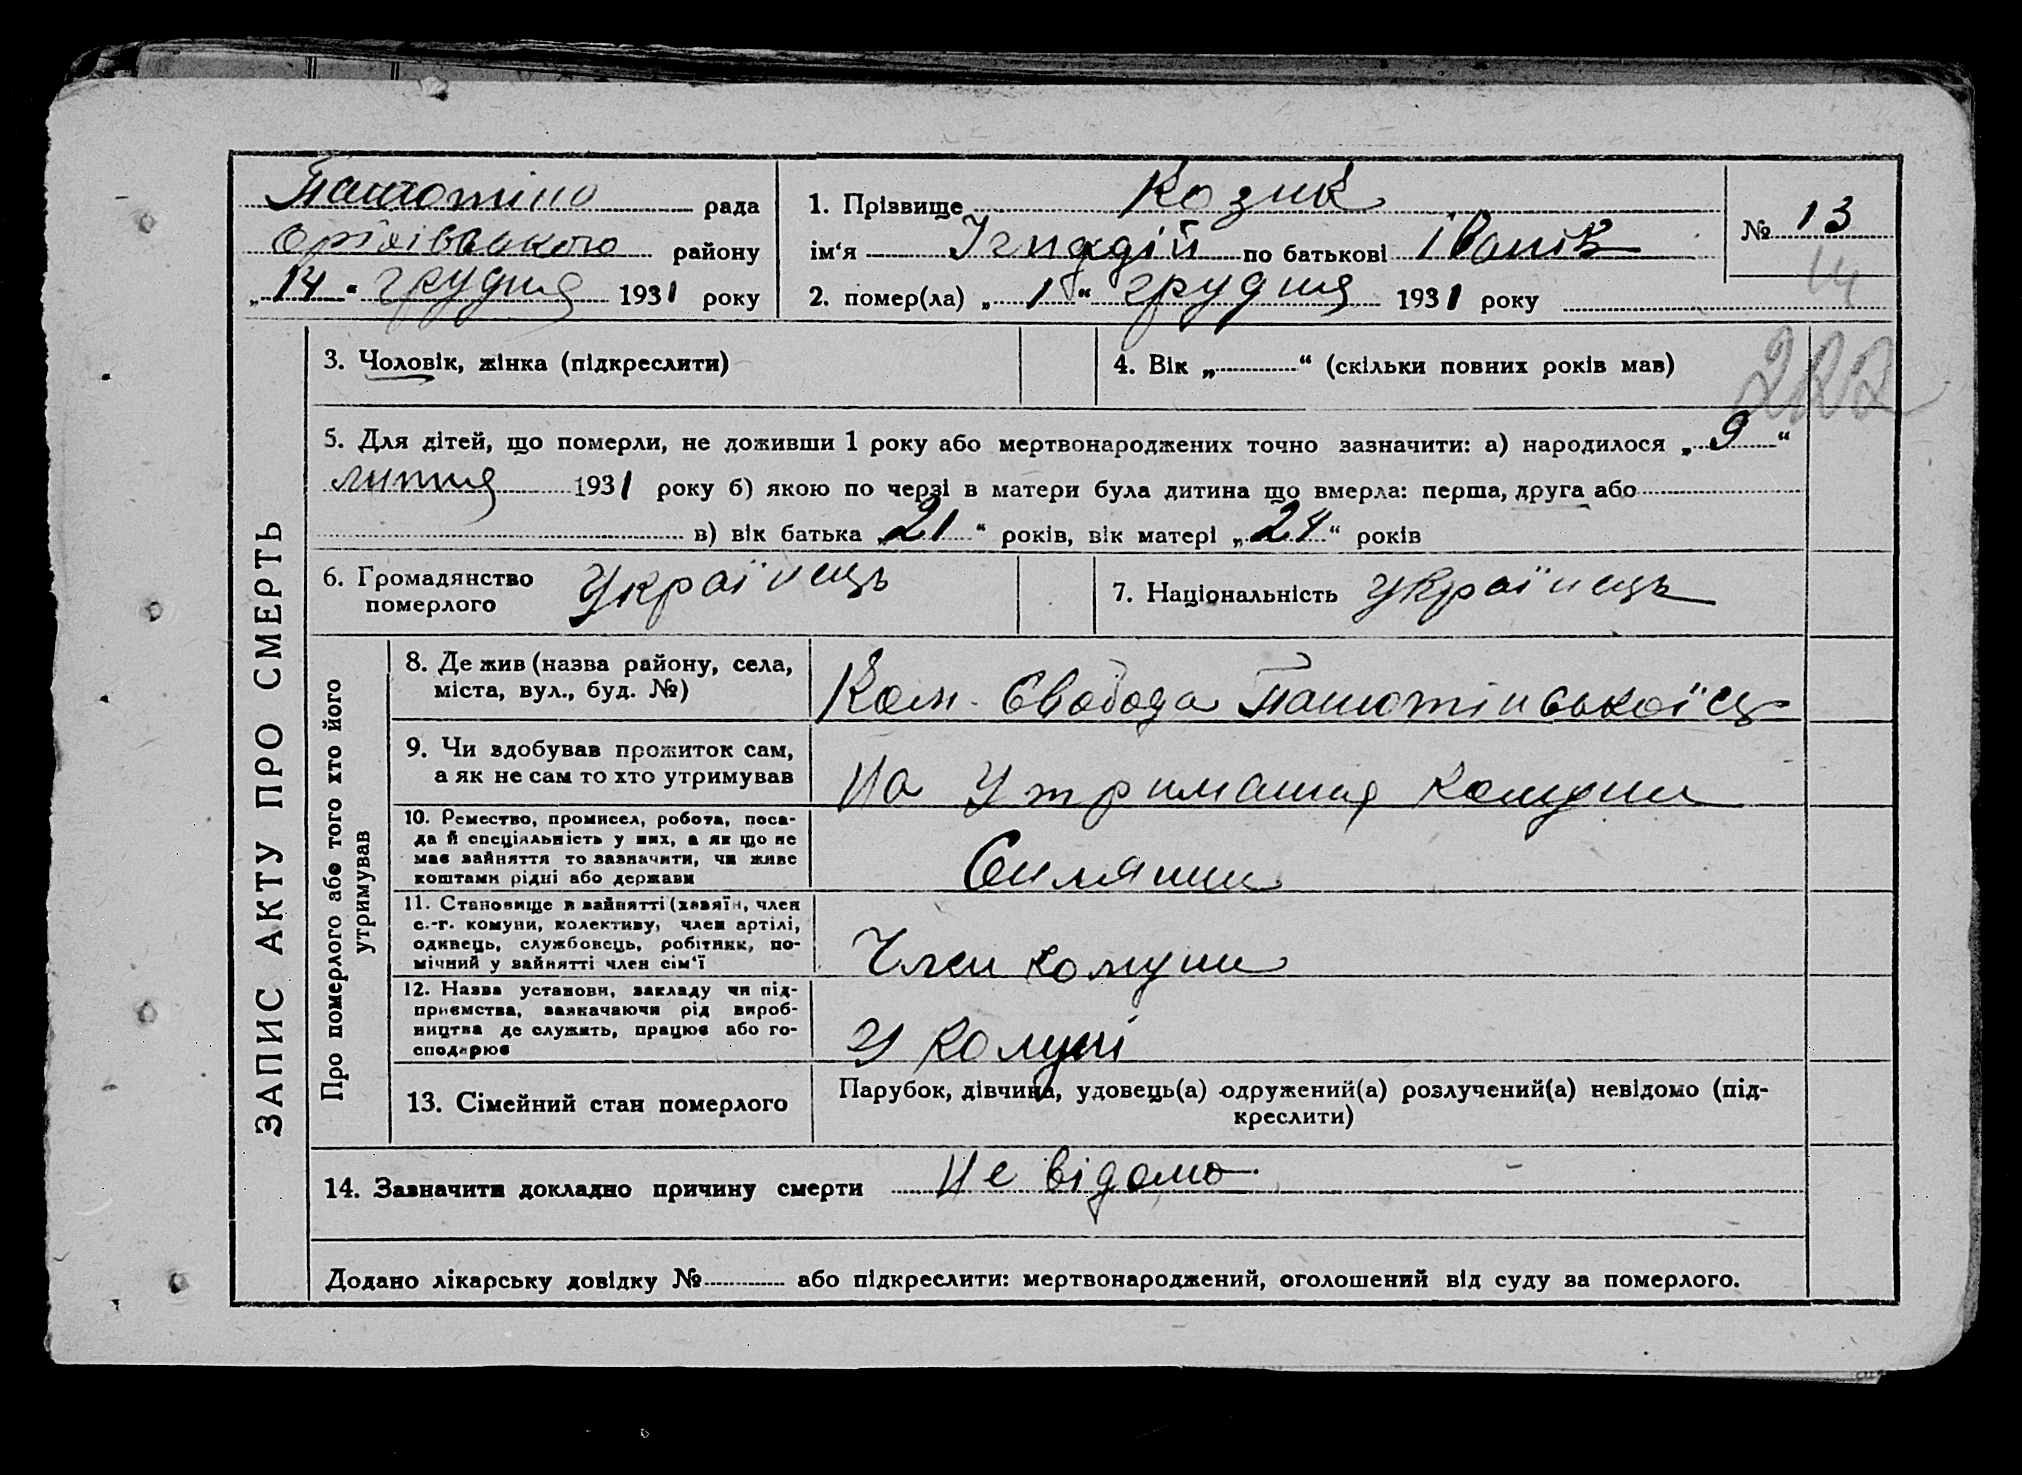 рада
району
„14“ грудня 1931 року
1. Прізвище Козик
ім‘я по батькові
2. помер(ла) „1“ грудня 1931 року
№ 13
14
3. Чоловік, жінка (підкреслити)
4. Вік „ “ (скільки повних років мав)
5. Для дітей, що померли, не доживши 1 року або мертвонароджених точно зазначити: а) народилося „9“
липня 1931 року б) якою по черзі в матери була дитина що вмерла: перша, друга або
в) вік батька „21“ років, вік матері „24“ років
6. Громадянство
померлого
Українець
7. Національність Українець
ЗАПИС АКТУ ПРО СМЕРТЬ
Про померлого або того хто його
утримував
8. Де жив (назва району, села,
міста, вул., буд. №)
Ком. Свобода
9. Чи вдобував прожиток сам,
а як не сам то хто утримував
На Утримания комуни
10. Ремество, промисел, робота, поса-
да й спеціяльність у них, а як що не
має вайняття то вазначити, чи живе
коштами рідні або держави
11. Становище в вайнятті (хавяїн, член
с.-г. комуни, колективу, член артілі,
одинець, службовець, робітник, по-
мічний у вайнятті член сім‘ї
Член комуни
12. Назва установи, вакладу чи під-
приємства, вавначаючи рід вироб-
ництва де служить, працює або го-
сподарює
У комуні
13. Сімейний стан померлого
Парубок, дівчина, удовець(а) одружений(а) розлучений(а) невідомо (під-
креслити)
14. Зазначити докладно причину смерти Не відомо
Додано лікарську довідку № або підкреслити: мертвонароджений, оголошений від суду за померлого.